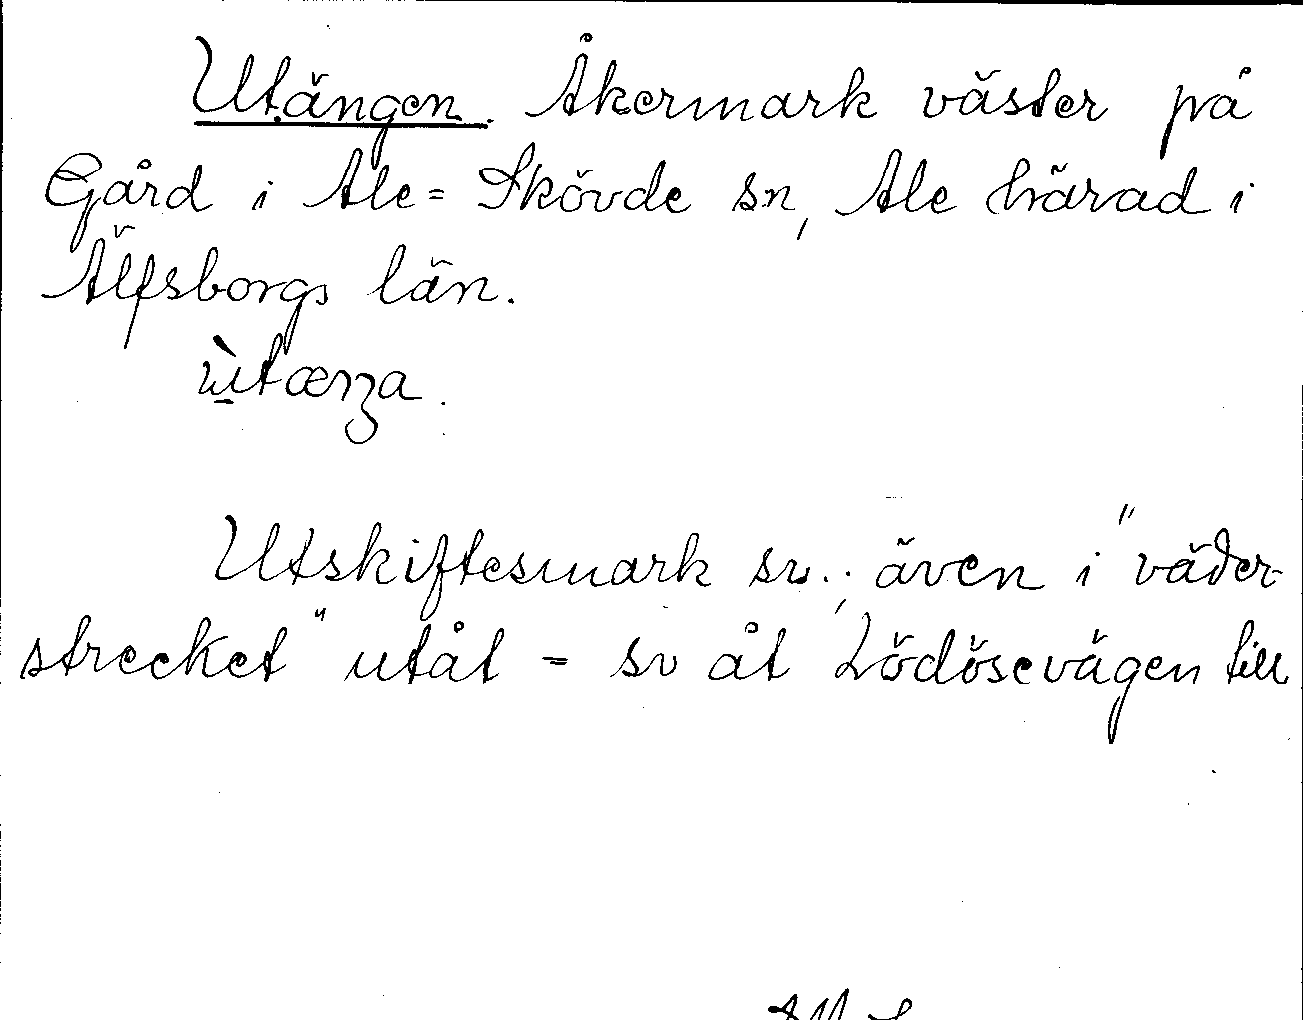 Utängen. Åkermark väster på
Gård i Ale=Skövde sn, Ale härad i
Älfsborgs län.
Utskiftesmark sv.; även i "väder-
strecket" utåt - sv åt Lödösevägen till